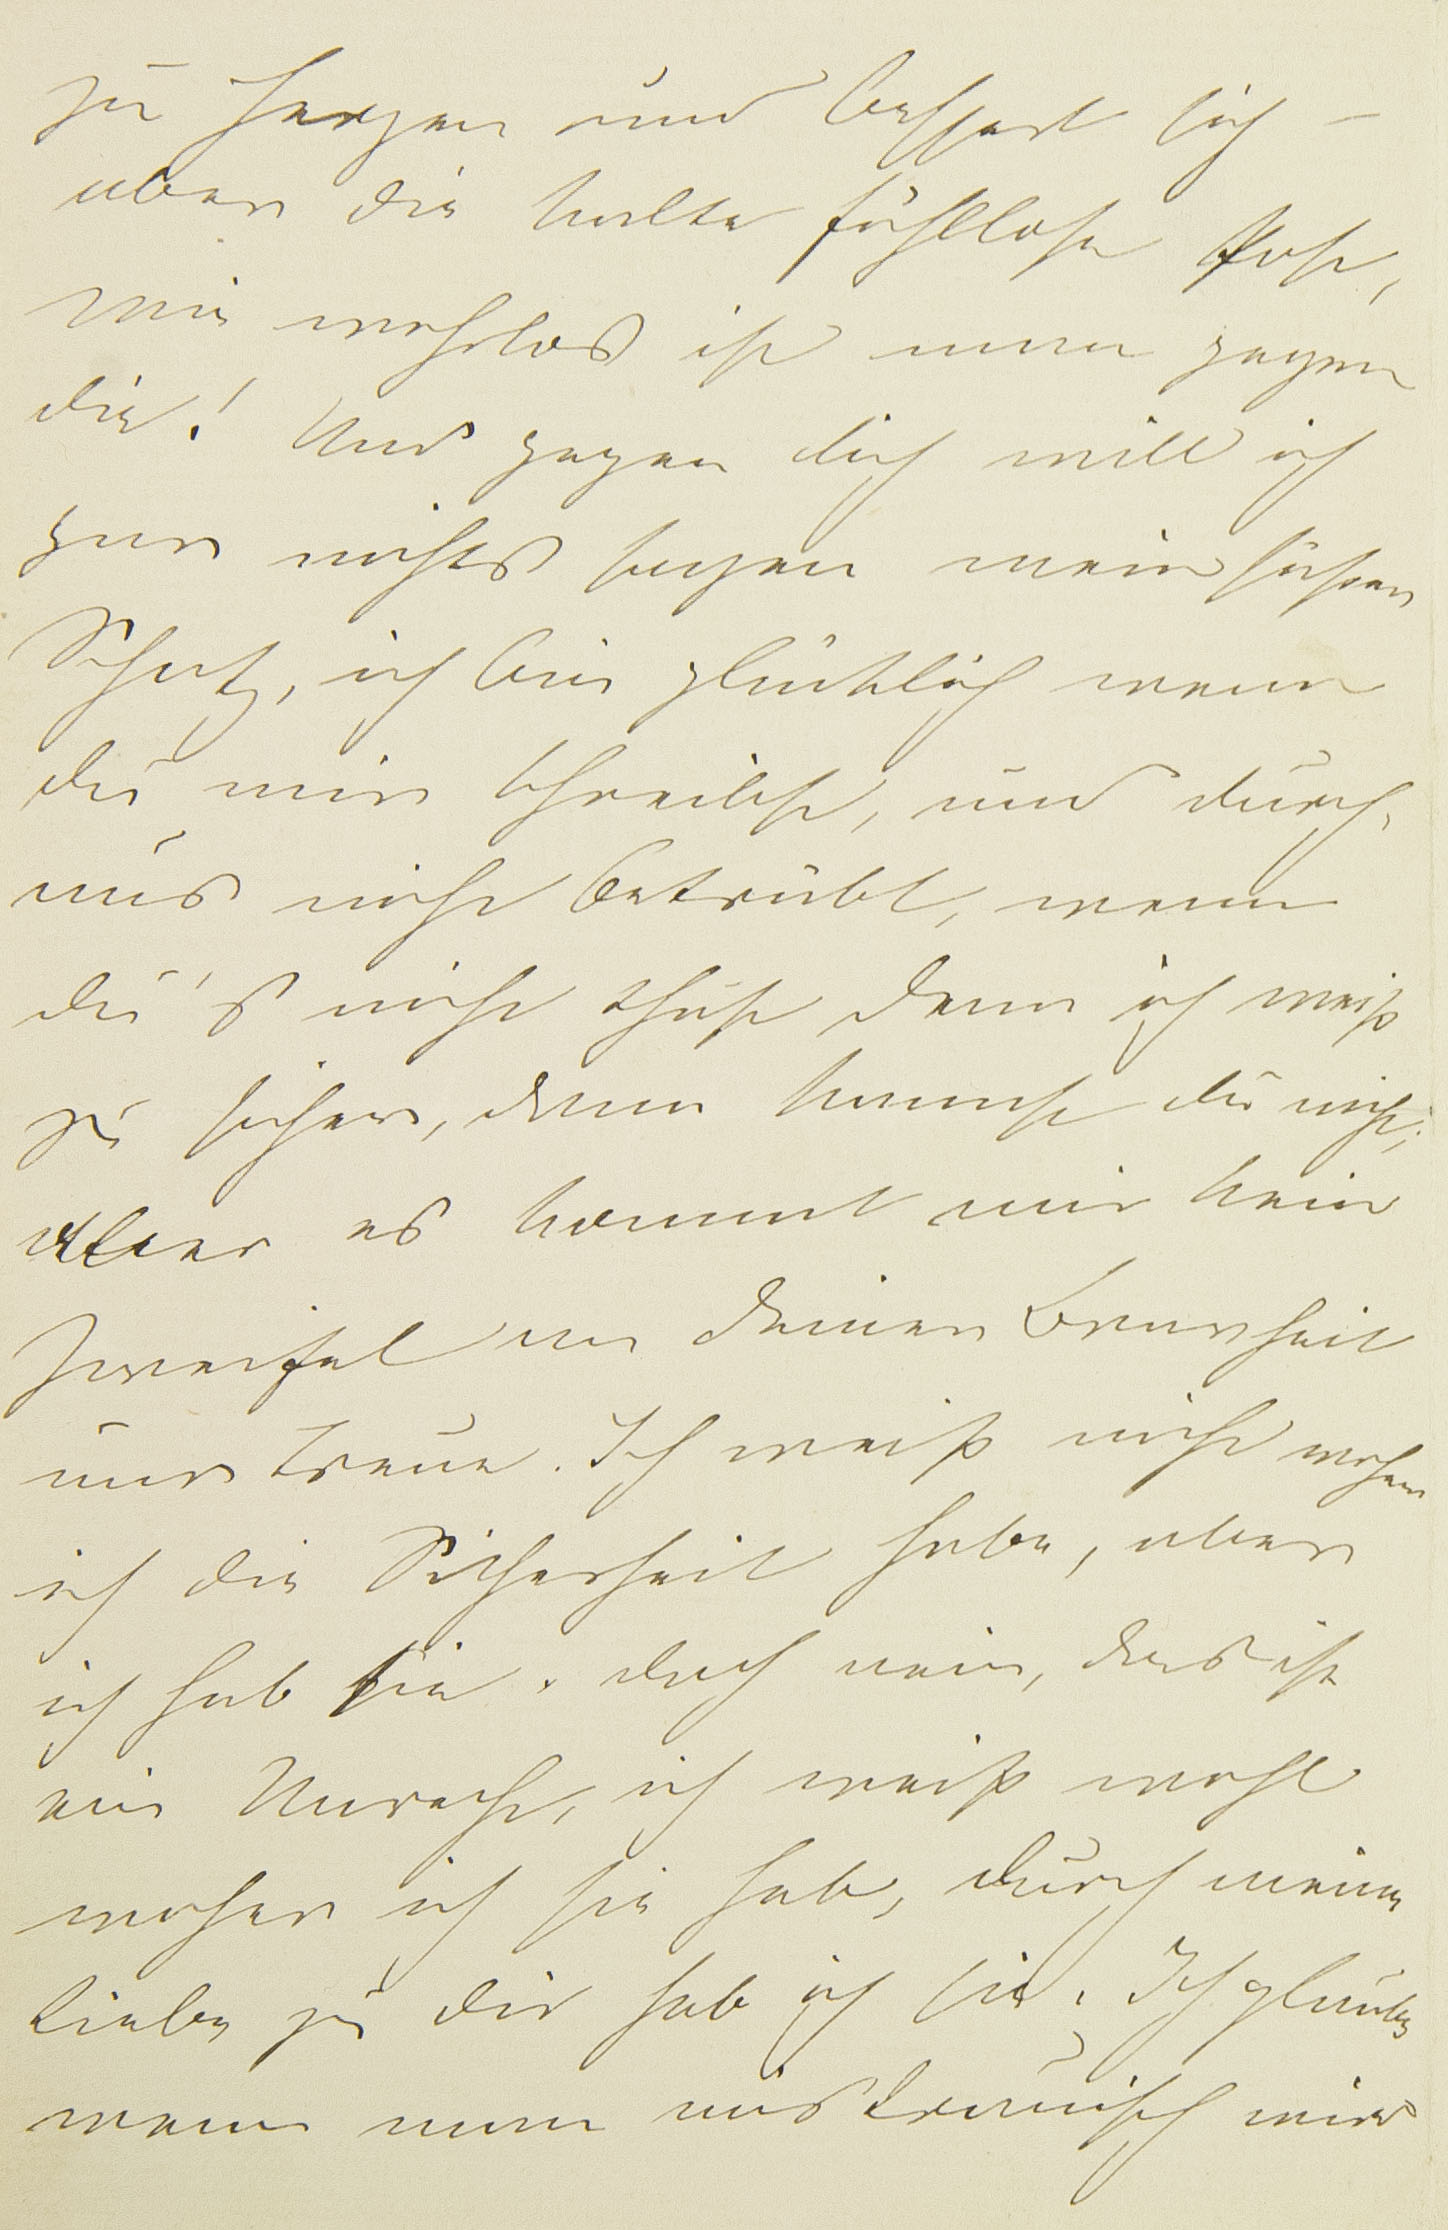 zu Herzen und bessert sich –
aber die kalte fühllose Post,
wie wehrlos ist man gegen
die! Und gegen dich will ich
gar nichts sagen mein süßer
Schatz, ich bin glücklich wenn
du mir schreibst, und durch-
aus nicht betrübt, wenn
du's nicht thust denn ich weiß
zu sicher, dann kannst du nicht;
aber es kommt mir kein
Zweifel an deiner Bravheit
und Treue. Ich weiß nicht woher
ich die Sicherheit habe, aber
ich hab sie. doch nein, das ist
ein Unrecht, ich weiß wohl
woher ich sie hab, durch meine
Liebe zu dir hab ich sie. Ich glaube
wenn man mistrauisch wird